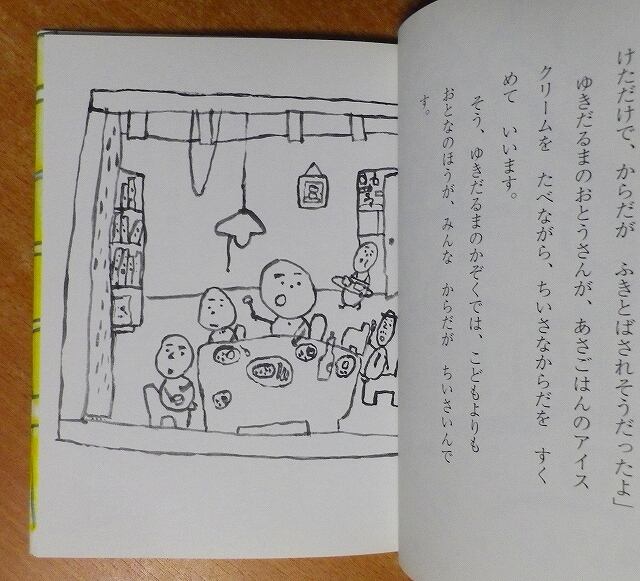 けただけで、からだが　ふきとばされそうだったよ」
ゆきだるまのおとうさんが、あさごはんのアイス
クリームを　たべながら、ちいさなからだを　すく
めて　いいます。
そう、ゆきだるまのかぞくでは、こどもよりも
おとなのほうが、みんな　からだが　ちいさいんで
す。